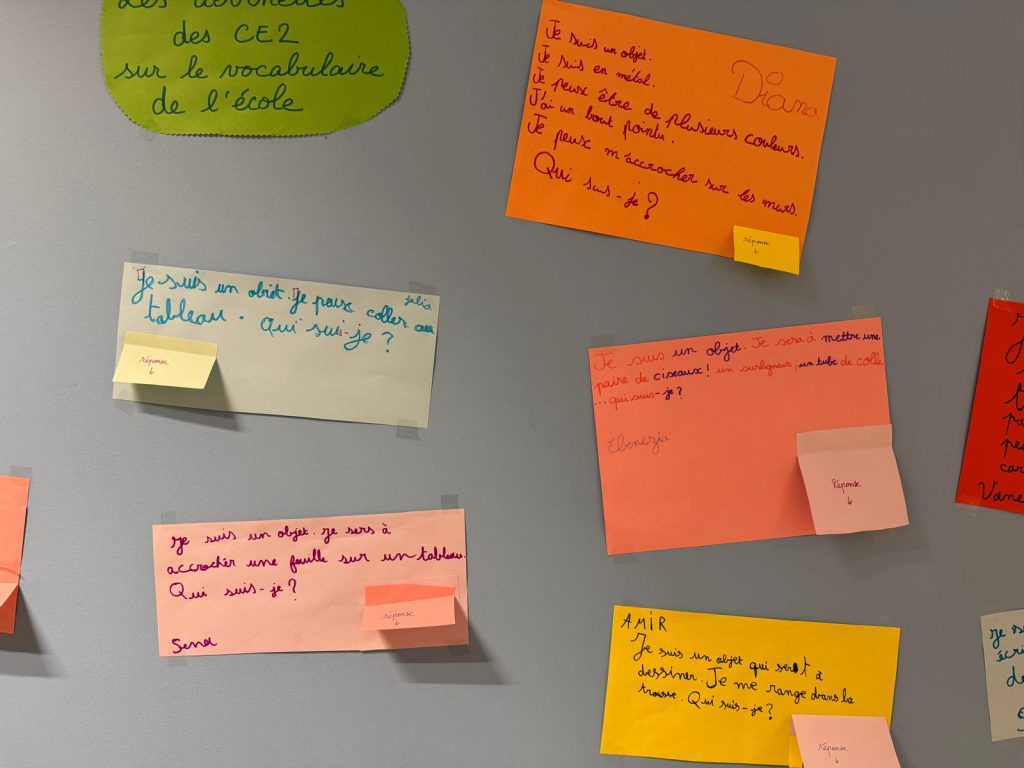 Les devinettes
des CE2
sur le vocabulaire
de l'école
Je suis un objet.
Je suis en métal.
Je peux être de plusieurs couleurs.
J'ai un bout pointu.
Je peux m'accrocher sur les murs.
Qui suis-je ?
Diana
réponse
Je suis un objet. Je peux coller au
tableau. Qui suis-je ?
julia
réponse
Je suis un objet. Je sera à mettre une
paire de ciseaux ! un surligneur, un tube de colle
... qui suis-je ?
Ebenezia
Réponse
Je suis un objet. Je sers à
accrocher une feuille sur un tableau.
Qui suis-je ?
réponse
AMIR
Je suis un objet qui sert à
dessiner. Je me range dans la
trousse. Qui suis-je ?
réponse
Je
écri
de
Vane